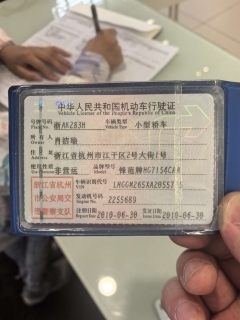 中华人民共和国机动车行驶证
Vehicle License of the People's Republic of China
号牌号码 浙AK283H 车辆类型 小型轿车
Plate No. Vehicle Type
所有人 肖皓瑜
Owner
住址 浙江省杭州市江干区2号大街1号
使用性质 非营运 品牌型号 锋范牌HG7154CAA
浙江省杭州 车辆识别代号
VIN
市公安局交 发动机号码 2255680
Engine No.
警察支队 注册日期 2010-06-30 发证日期 2010-06-30